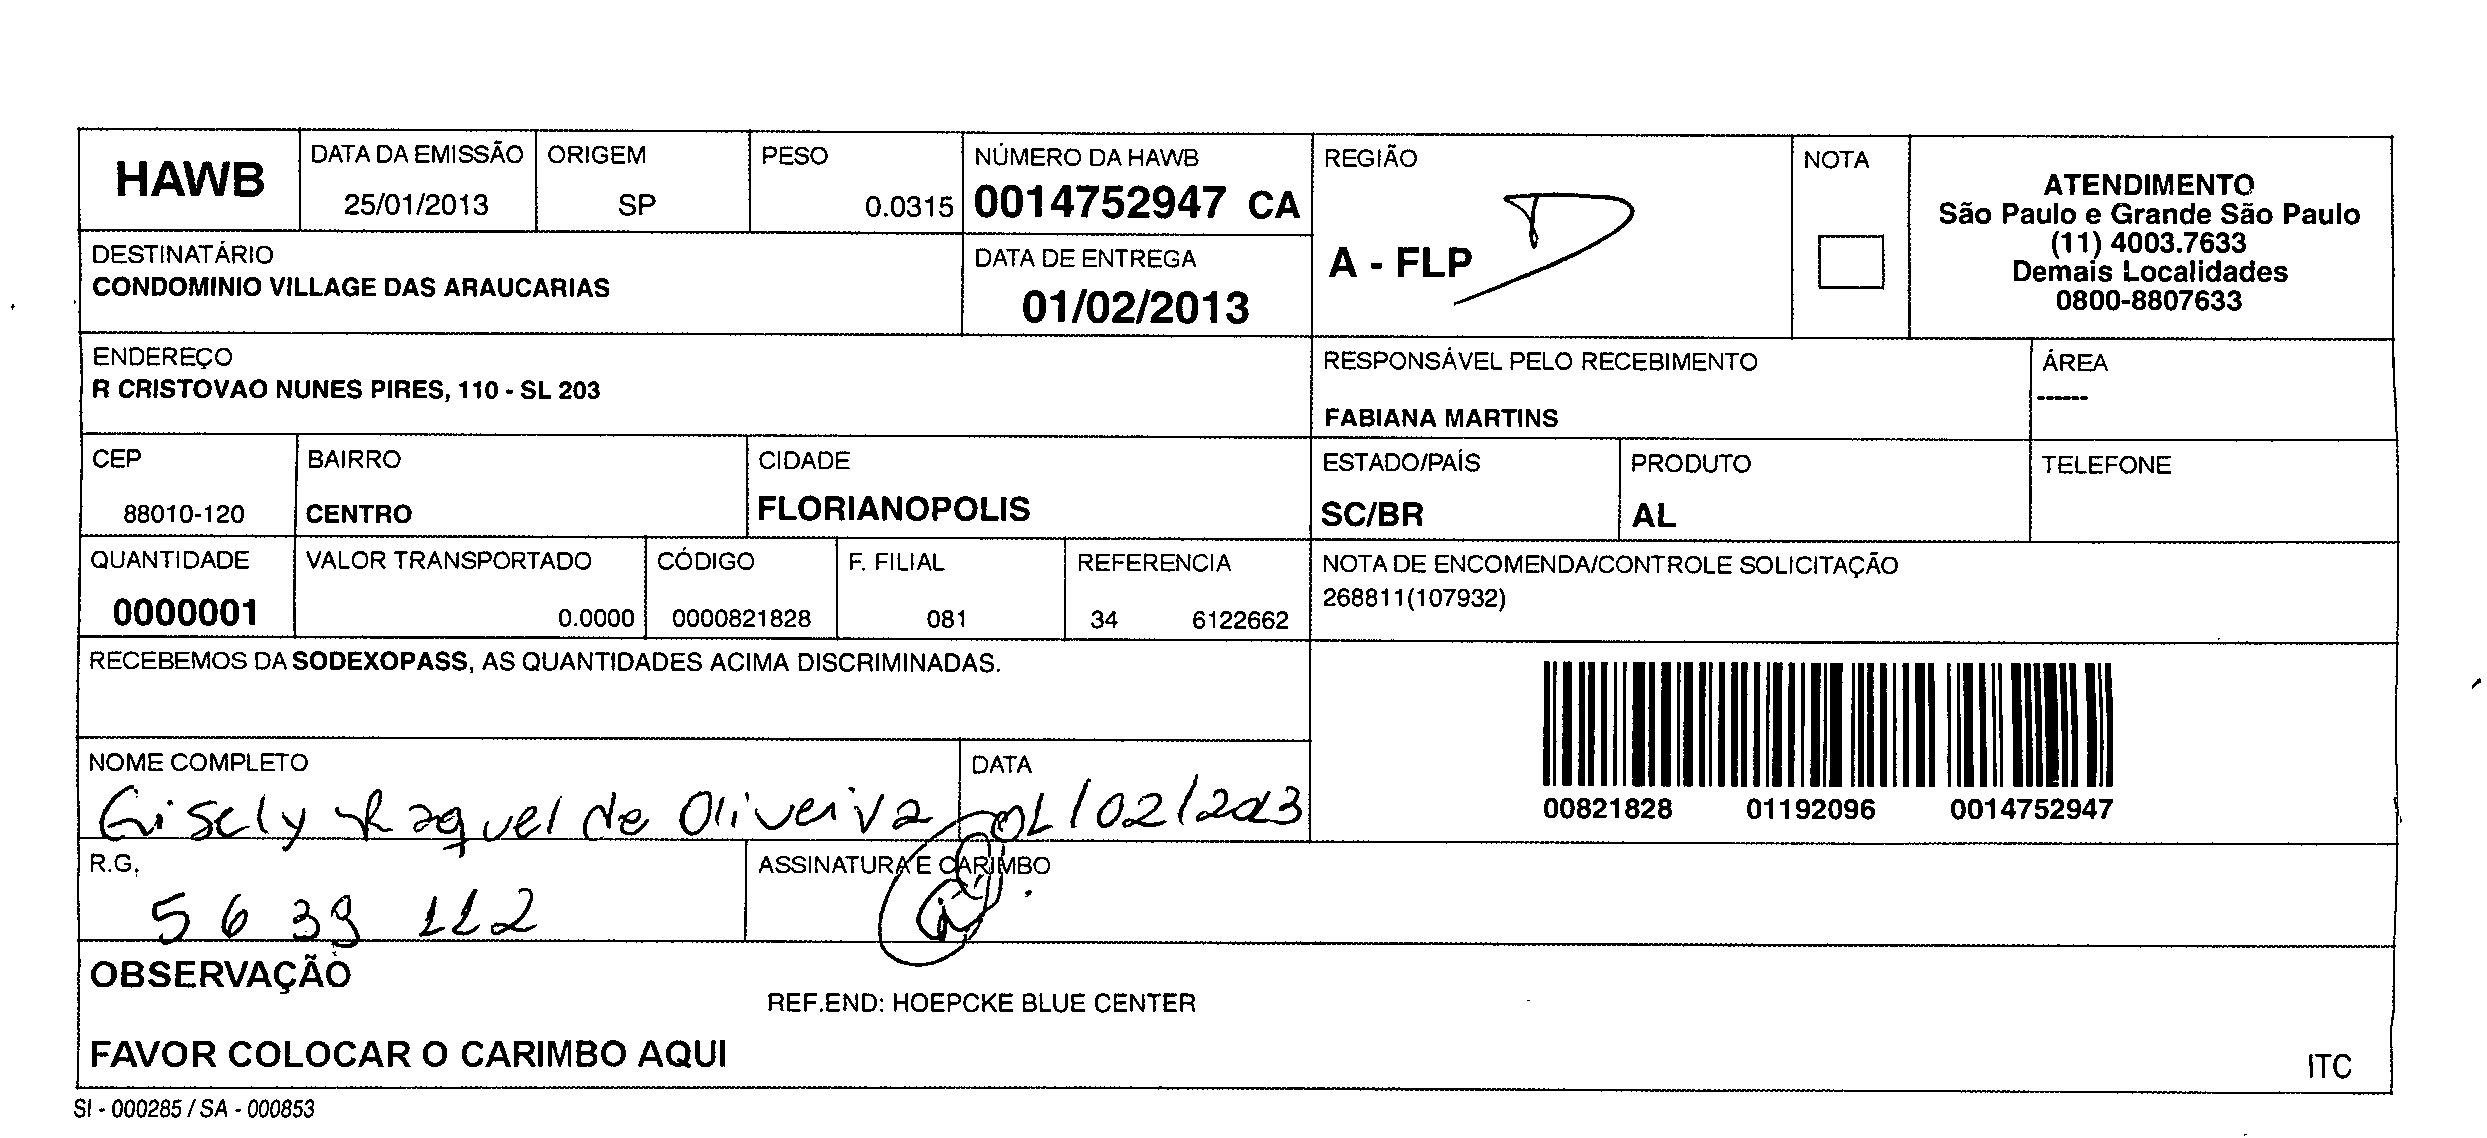 HAWB
DATA DA EMISSÃO
25/01/2013
ORIGEM
SP
PESO
0.0315
NÚMERO DA HAWB
0014752947 CA
REGIÃO
A - FLP
NOTA
ATENDIMENTO
São Paulo e Grande São Paulo
(11) 4003.7633
Demais Localidades
0800-8807633
DESTINATÁRIO
CONDOMINIO VILLAGE DAS ARAUCARIAS
DATA DE ENTREGA
01/02/2013
ENDEREÇO
R CRISTOVAO NUNES PIRES, 110 - SL 203
RESPONSÁVEL PELO RECEBIMENTO
FABIANA MARTINS
ÁREA
------
CEP
88010-120
BAIRRO
CENTRO
CIDADE
FLORIANOPOLIS
ESTADO/PAÍS
SC/BR
PRODUTO
AL
TELEFONE
QUANTIDADE
0000001
VALOR TRANSPORTADO
0.0000
CÓDIGO
0000821828
F. FILIAL
081
REFERENCIA
34 6122662
NOTA DE ENCOMENDA/CONTROLE SOLICITAÇÃO
268811(107932)
RECEBEMOS DA SODEXOPASS, AS QUANTIDADES ACIMA DISCRIMINADAS.
00821828 01192096 0014752947
NOME COMPLETO
Gisely Raquel de Oliveira
DATA
01/02/2013
R.G.
5639 112
ASSINATURA E CARIMBO
OBSERVAÇÃO
REF.END: HOEPCKE BLUE CENTER
FAVOR COLOCAR O CARIMBO AQUI
ITC
SI - 000285 / SA - 000853